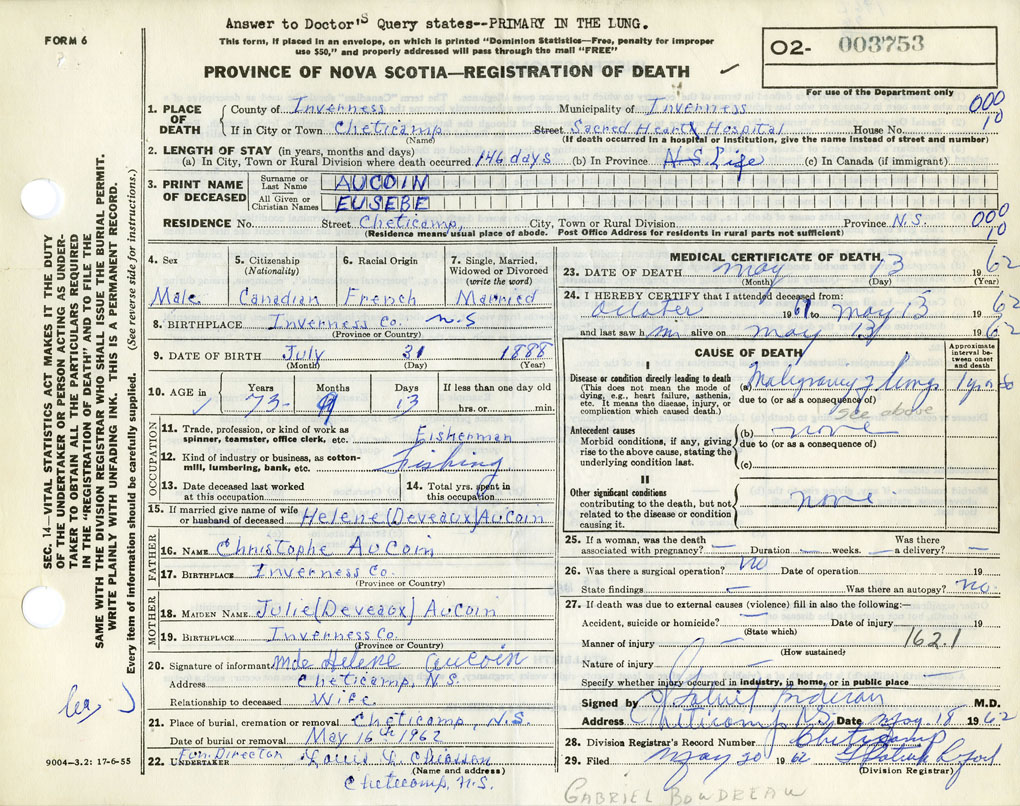 Answer to Doctor's Query states--PRIMARY IN THE LUNG.
FORM 6
This form, if placed in an envelope, on which is printed "Dominion Statistics—Free, penalty for improper
use $50," and properly addressed will pass through the mail "FREE"
O2- 003753
For use of the Department only
PROVINCE OF NOVA SCOTIA—REGISTRATION OF DEATH
SEC. 14—VITAL STATISTICS ACT MAKES IT THE DUTY
OF THE UNDERTAKER OR PERSON ACTING AS UNDER-
TAKER TO OBTAIN ALL THE PARTICULARS REQUIRED
IN THE "REGISTRATION OF DEATH" AND TO FILE THE
SAME WITH THE DIVISION REGISTRAR WHO SHALL ISSUE THE BURIAL PERMIT.
WRITE PLAINLY WITH UNFADING INK. THIS IS A PERMANENT RECORD.
Every item of information should be carefully supplied. (See reverse side for instructions.)
1. PLACE OF DEATH
County of Inverness Municipality of Inverness 000
10
If in City or Town Cheticamp Street Sacred Heart Hospital House No.
(Name) (If death occurred in a hospital or institution, give the name instead of street and number)
2. LENGTH OF STAY (in years, months and days)
(a) In City, Town or Rural Division where death occurred 146 days (b) In Province N.S. Life (c) In Canada (if immigrant)
3. PRINT NAME OF DECEASED
Surname or Last Name AUCOIN
All Given or Christian Names EUSEBE
RESIDENCE No. Street Cheticamp, City, Town or Rural Division Province N.S. 000
10
(Residence means usual place of abode. Post Office Address for residents in rural parts not sufficient)
4. Sex
Male
5. Citizenship
(Nationality)
Canadian
6. Racial Origin
French
7. Single, Married,
Widowed or Divorced
(write the word)
Married
8. BIRTHPLACE Inverness Co. N.S
(Province or Country)
9. DATE OF BIRTH July 31 1888
(Month) (Day) (Year)
10. AGE in
Years Months Days If less than one day old
73- 9 13 hrs. or min.
OCCUPATION
11. Trade, profession, or kind of work as
spinner, teamster, office clerk, etc. Fisherman
12. Kind of industry or business, as cotton-
mill, lumbering, bank, etc. Fishing
13. Date deceased last worked
at this occupation
14. Total yrs. spent in
this occupation
15. If married give name of wife
or husband of deceased Helene (Deveaux) AuCoin
FATHER
16. NAME Christophe AuCoin
17. BIRTHPLACE Inverness Co.
(Province or Country)
MOTHER
18. MAIDEN NAME Julie (Deveaux) AuCoin
19. BIRTHPLACE Inverness Co.
(Province or Country)
20. Signature of informant Mde Helene Aucoin
Address Cheticamp, N.S.
Relationship to deceased Wife
21. Place of burial, cremation or removal Cheticamp, N.S.
Date of burial or removal May 16th 1962
Fun Director
22. UNDERTAKER Louis L. Chiasson
(Name and address)
Cheticamp, N.S.
9004—3.2: 17-6-55
MEDICAL CERTIFICATE OF DEATH
23. DATE OF DEATH May 13 1962
(Month) (Day) (Year)
24. I HEREBY CERTIFY that I attended deceased from:
October 1961 to May 13 1962
and last saw him alive on May 13 1962
CAUSE OF DEATH
Approximate
interval be-
tween onset
and death
I
Disease or condition directly leading to death
(This does not mean the mode of
dying, e.g., heart failure, asthenia,
etc. It means the disease, injury, or
complication which caused death.)
(a) Malignancy of lungs
due to (or as a consequence of)
see above
Antecedent causes
Morbid conditions, if any, giving
rise to the above cause, stating the
underlying condition last.
(b) none
due to (or as a consequence of)
(c)
II
Other significant conditions
contributing to the death, but not
related to the disease or condition
causing it.
none
25. If a woman, was the death
associated with pregnancy? — Duration — weeks. Was there
a delivery? —
26. Was there a surgical operation? no Date of operation 19
State findings — Was there an autopsy? no
27. If death was due to external causes (violence) fill in also the following:—
Accident, suicide or homicide? — Date of injury 19
(State which)
Manner of injury — 162.1
(How sustained)
Nature of injury —
Specify whether injury occurred in industry, in home, or in public place —
Signed by M.D.
Address Cheticamp N.S. Date May 18 1962
28. Division Registrar's Record Number Cheticamp
29. Filed May 20 1962
(Division Registrar)
GABRIEL BOWDREAU